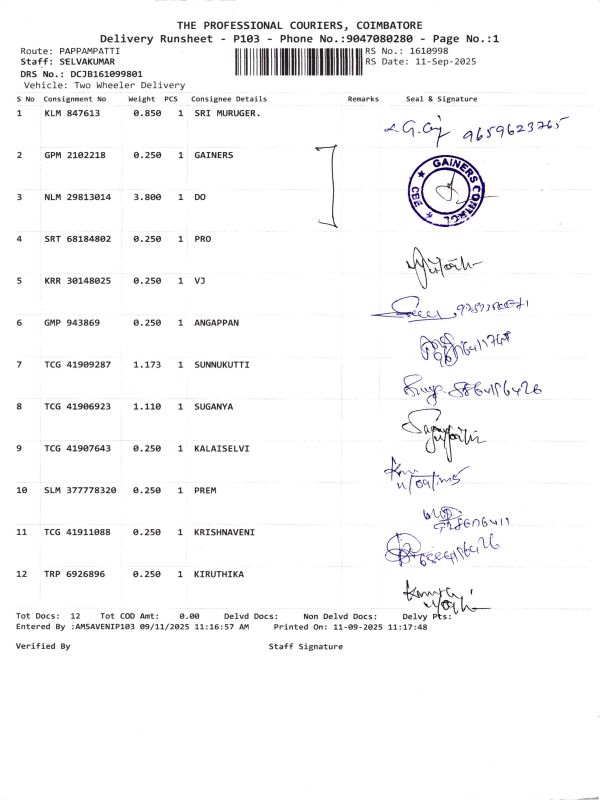 THE PROFESSIONAL COURIERS, COIMBATORE
Delivery Runsheet - P103 - Phone No.:9047080280 - Page No.:1
Route: PAPPAMPATTI RS No.: 1610998
Staff: SELVAKUMAR RS Date: 11-Sep-2025
DRS No.: DCJB161099801
Vehicle: Two Wheeler Delivery
S No Consignment No Weight PCS Consignee Details Remarks Seal & Signature
1 KLM 847613 0.850 1 SRI MURUGER.
9659623765
2 GPM 2102218 0.250 1 GAINERS
GAINERS CONTACT CBE
3 NLM 29813014 3.800 1 DO
4 SRT 68184802 0.250 1 PRO
5 KRR 30148025 0.250 1 VJ
6 GMP 943869 0.250 1 ANGAPPAN
7 TCG 41909287 1.173 1 SUNNUKUTTI
8 TCG 41906923 1.110 1 SUGANYA
9 TCG 41907643 0.250 1 KALAISELVI
10 SLM 377778320 0.250 1 PREM
11 TCG 41911088 0.250 1 KRISHNAVENI
12 TRP 6926896 0.250 1 KIRUTHIKA
Tot Docs: 12 Tot COD Amt: 0.00 Delvd Docs: Non Delvd Docs: Delvy Pts:
Entered By :AMSAVENIP103 09/11/2025 11:16:57 AM Printed On: 11-09-2025 11:17:48
Verified By Staff Signature